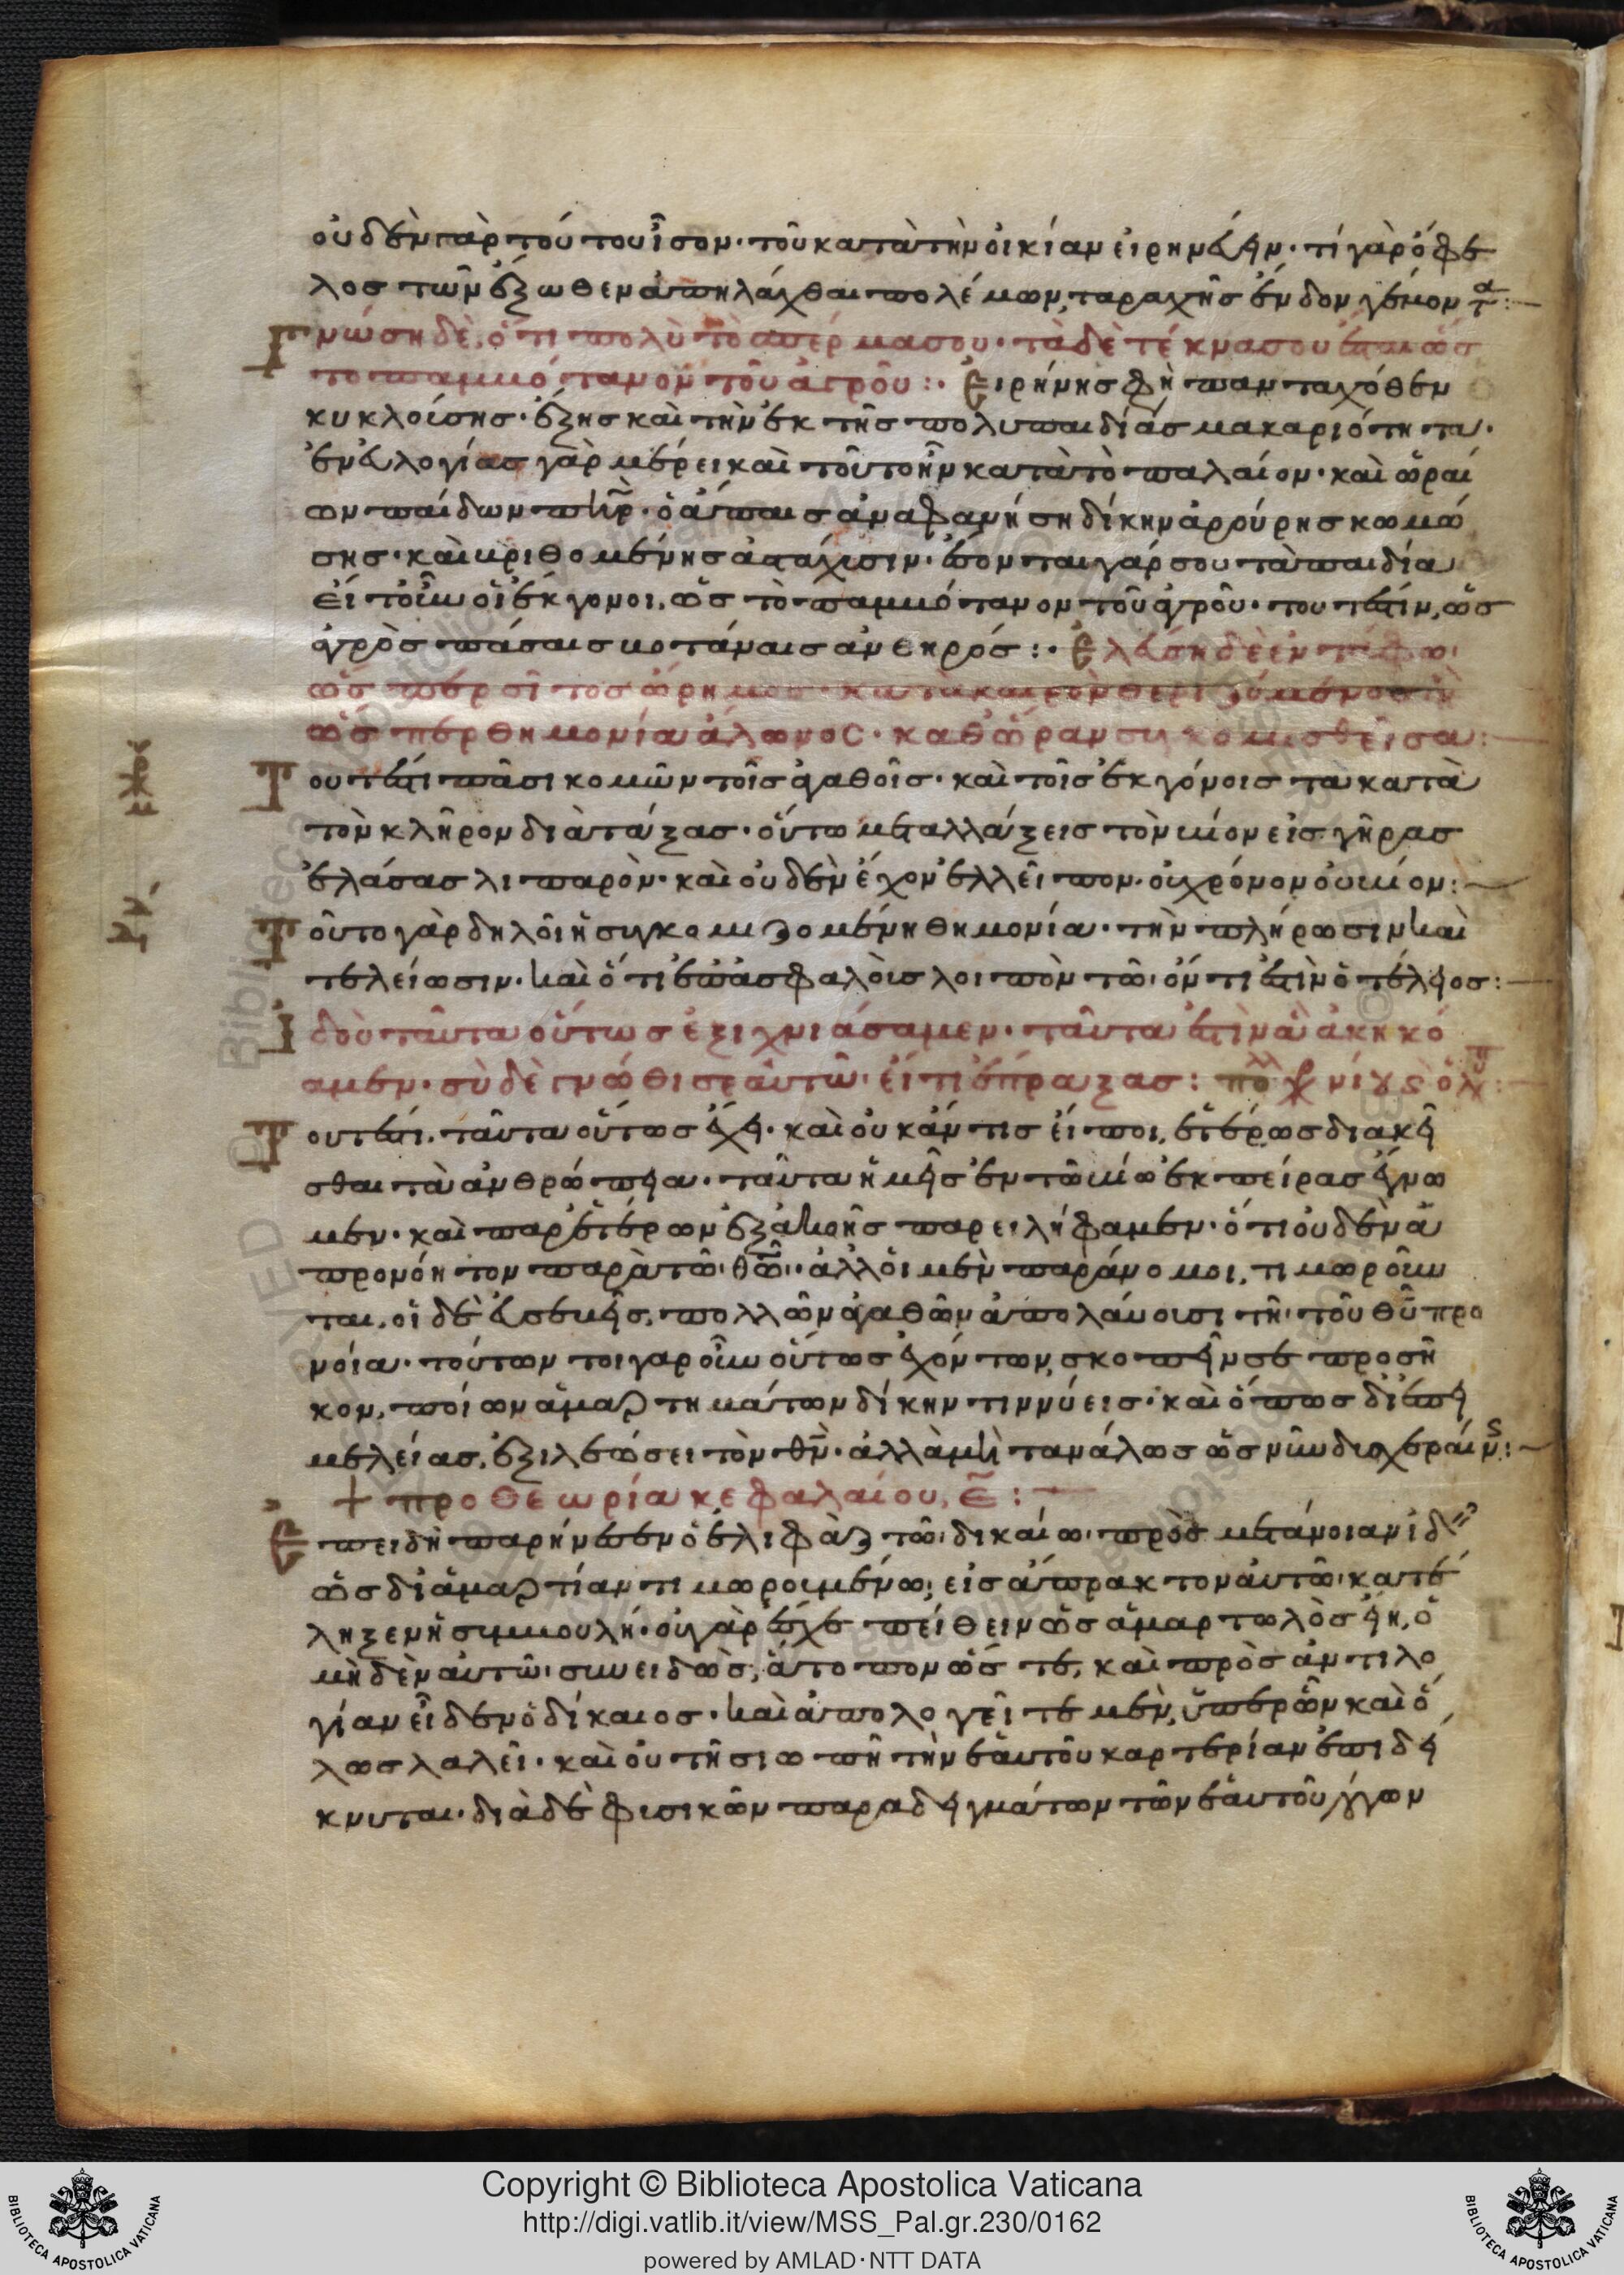 οὐδὲν παρ τούτου ἶσον· τοῦ κατὰ τὴν οἰκίαν εἰρηνεύειν· τί γὰρ ὄφε
λος τῶν ἔξωθεν ἀπηλάχθαι πολέμων, ταραχῆς ἔνδον γέμοντα:
Γνώσῃ δὲ, ὅτι πολὺ τὸ σπέρμα σου· τὰ δὲ τέκνα σου ἔσται ὥσ
το παμβότανον τοῦ ἀγροῦ:· Εἰρήνης φὴ πανταχόθεν
κυκλοίσης· ἕξης καὶ τὴν ἐκ τῆς πολυπαιδίας μακαριότητα·
ἐν εὐλογίας γὰρ μέρει καὶ τοῦτο ἦν κατὰ τὸ παλαίον· καὶ ὡραί
ων παίδων πὴρ· ὁ ἄπαις ἀναφανήση δίκην ἀρούρης κομώ
σης· καὶ βριθομένης ἀστάχισιν· ἔσονται γάρ σου τὰ παιδία
εἴτ οὖν οἱ ἔκγονοι, ὡς τὸ παμβότανον τοῦ ἀγροῦ· τουτέστιν, ὡς
ἀγρὸς πάσαις βοτάναις ἀνθηρός:· Ἐλεύση δὲ ἐν τάφω·
ὥσπερ σῖτος ὥρημος· κατὰ καιρὸν θεριζόμενος ἢ
ὥσπερ θημονία ἅλωνος· καθ ὥραν συγκομισθεῖσα:
Τουτέστι πᾶσι κομῶν τοῖς ἀγαθοῖς· καὶ τοῖς ἐκγόνοις τὰ κατὰ
τὸν κλῆρον διατάξας· οὕτω μεταλλάξεις τὸν βίον εἰς γῆρας
ἐλάσας λιπαρὸν· καὶ οὐδὲν ἔχον ἐλλεῖπον· οὐ χρόνον οὐ βίον:
Τοῦτο γὰρ δηλοῖ ἡ συγκομιζομένη θημονία· τὴν πλήρωσιν καὶ
τελείωσιν· καὶ ὅτι ἐπ ἀσφαλοῖς λοιπὸν τῶ ὄντι ἐστὶν ὁ τέλειος:
Ἰδοὺ ταῦτα οὕτως ἐξιχνιάσαμεν· ταῦτα ἐστὶν ἃ ἀκηκό
αμεν· σὺ δὲ γνῶθι σεαυτῶ· εἴ τι ἔπραξας:
Τουτέστι. ταῦτα οὕτως ἔχει· καὶ οὐκ ἄν τις εἴποι, ἑτέρως διακεῖ
σθαι τὰ ἀνθρώπεια· ταῦτα ἡμεῖς ἐν τῶ βίω ἐκ πείρας ἔγνω
μεν· καὶ παρ ἑτέρων ἐξ ἀκοῆς παρειλήφαμεν· ὅτι οὐδὲν ἀ
προνόητον παρὰ τῶ θῶ·· ἀλλ οἱ μὲν παράνομοι, τιμωροῦν
ται, οἱ δὲ εὐσεβεῖς, πολλῶν ἀγαθῶν ἀπολάυουσι τῆ τοῦ θῦ προ
νοία· τούτων τοιγαροῦν οὕτως ἐχόντων, σκοπεῖν σε προσῆ
κον, ποίων ἁμαρτημάτων δίκην τιννύεις· καὶ ὅπως δι ἐπι
μελείας, ἐξιλεώσει τὸν θν· ἀλλὰ μὴ ταναλως ὡς νῦν δυσχεραίν:
+ προθεωρία κεφαλαίου, ε:
Ἐπειδὴ παρήνεσεν ὁ ἐλιφὰζ τῶ δικαίω πρὸς μετάνοιαν ἰδ
ὡς δι ἁμαρτίαν τιμωρουμένω· εἰς ἄπρακτον αὐτῶ κατέ
ληξεν ἡ συμβουλή· οὐ γὰρ ἔσχε πείθειν ὡς ἁμαρτωλὸς εἴη, ὁ
μὴδὲν αὑτῶ συνειδὼς, ἄτοπον ὥστε, καὶ πρὸς ἀντιλο
γίαν εἶδεν ὁ δίκαιος· καὶ ἀπολογεῖτε μὲν, ὑπὲρ ὧν καὶ ὅ
λως λαλεῖ· καὶ οὐ τῆ σιωπῆ τὴν ἑαυτοῦ καρτερίαν ἐπιδεί
κνυται· διὰ δὲ φισικῶν παραδειγμάτων τῶν ἑαυτοῦ λόγων
Copyright © Biblioteca Apostolica Vaticana
http://digi.vatlib.it/view/MSS_Pal.gr.230/0162
powered by AMLAD·NTT DATA